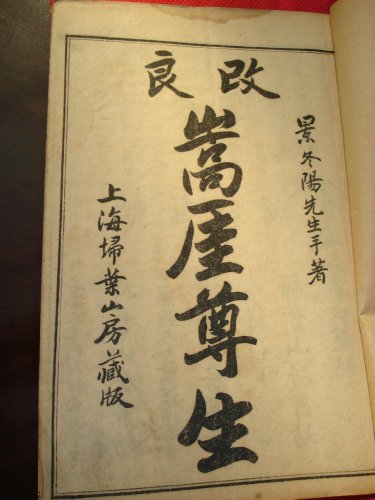 改良
景冬陽先生手著
嵩厓尊生
上海掃葉山房藏版